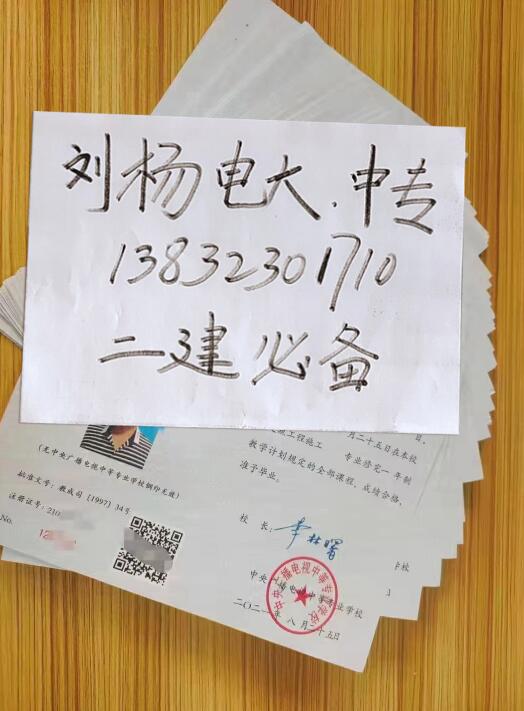 刘杨电大.中专
13832301710
二建必备
工程施工
月二十五日在本校
专业修完一年制
教学计划规定的全部课程，成绩合格，
准予毕业。
(无中央广播电视中等专业学校钢印无效)
批准文号：教成司【1997】34号
注册证号：210
No.
12
校 长：
李林曙
中央广播电视中等专业学校
二〇二一年八月二十五日